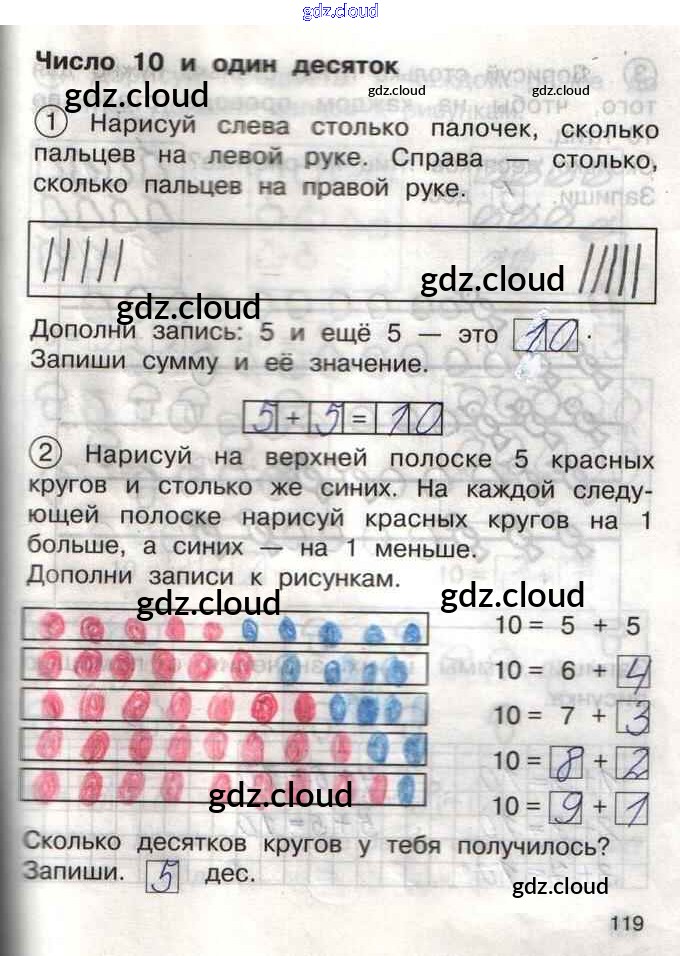 gdz.cloud
Число 10 и один десяток
gdz.cloud gdz.cloud gdz.cloud
1 Нарисуй слева столько палочек, сколько
пальцев на левой руке. Справа — столько,
сколько пальцев на правой руке.
gdz.cloud
gdz.cloud
Дополни запись: 5 и ещё 5 — это 10.
Запиши сумму и её значение.
5 + 5 = 10
2 Нарисуй на верхней полоске 5 красных
кругов и столько же синих. На каждой следу-
ющей полоске нарисуй красных кругов на 1
больше, а синих — на 1 меньше.
Дополни записи к рисункам.
gdz.cloud gdz.cloud
10 = 5 + 5
10 = 6 + 4
10 = 7 + 3
10 = 8 + 2
10 = 9 + 1
gdz.cloud
Сколько десятков кругов у тебя получилось?
Запиши. 5 дес.
gdz.cloud
119